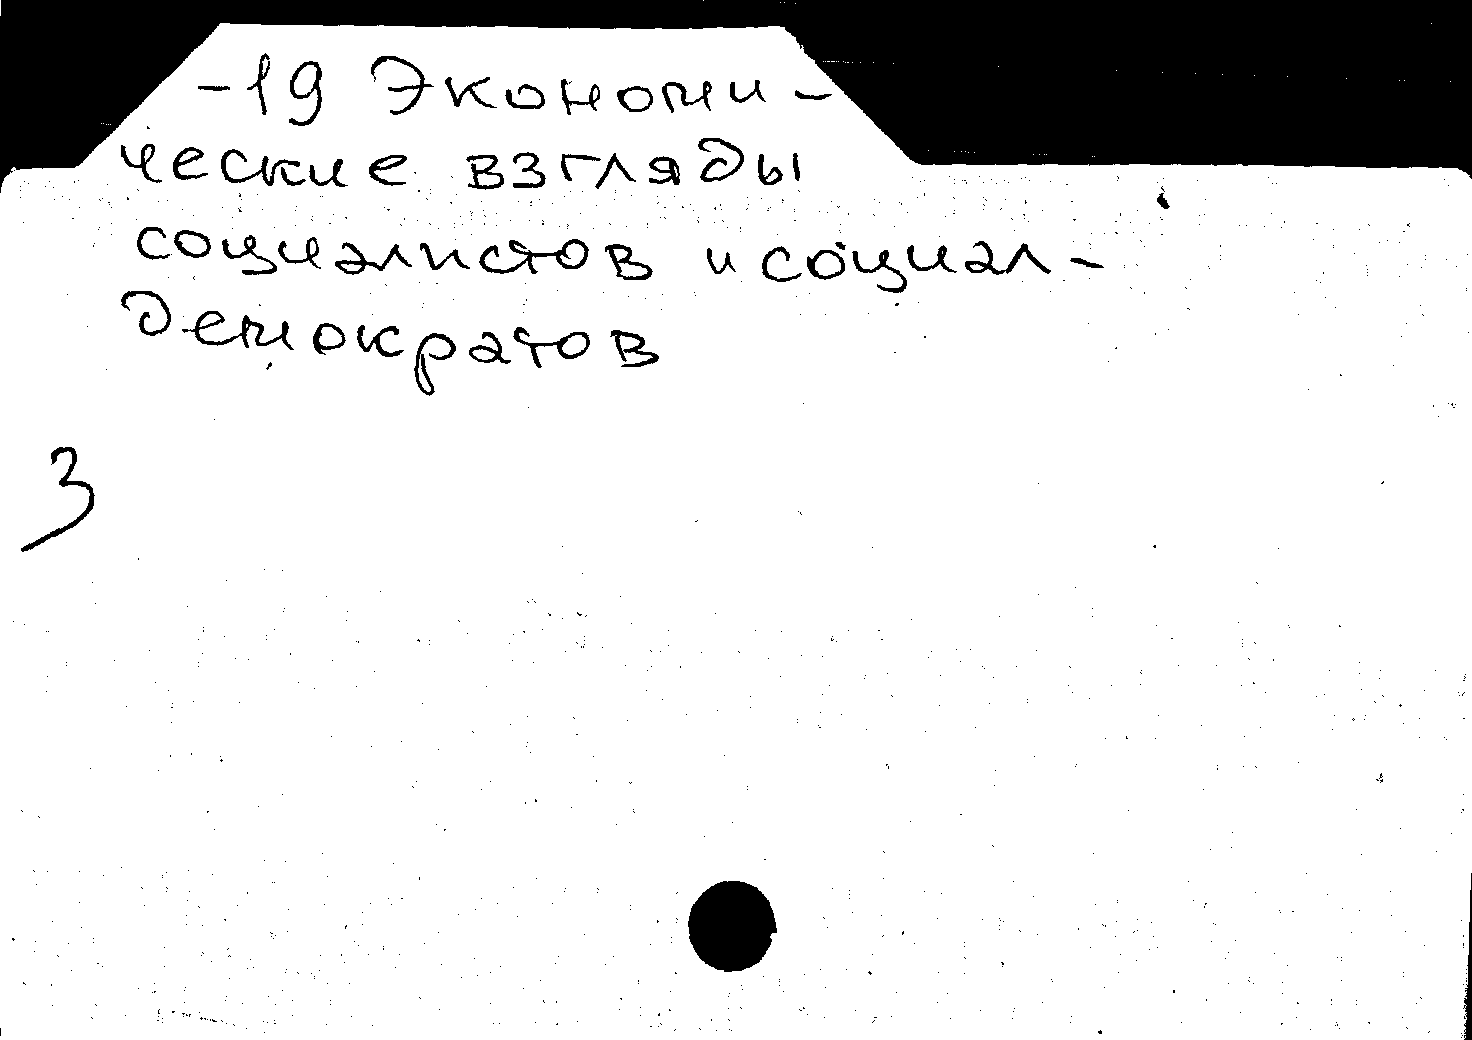 -19 Экономи-
ческие взгляды
социалистов и социал-
демократов
3